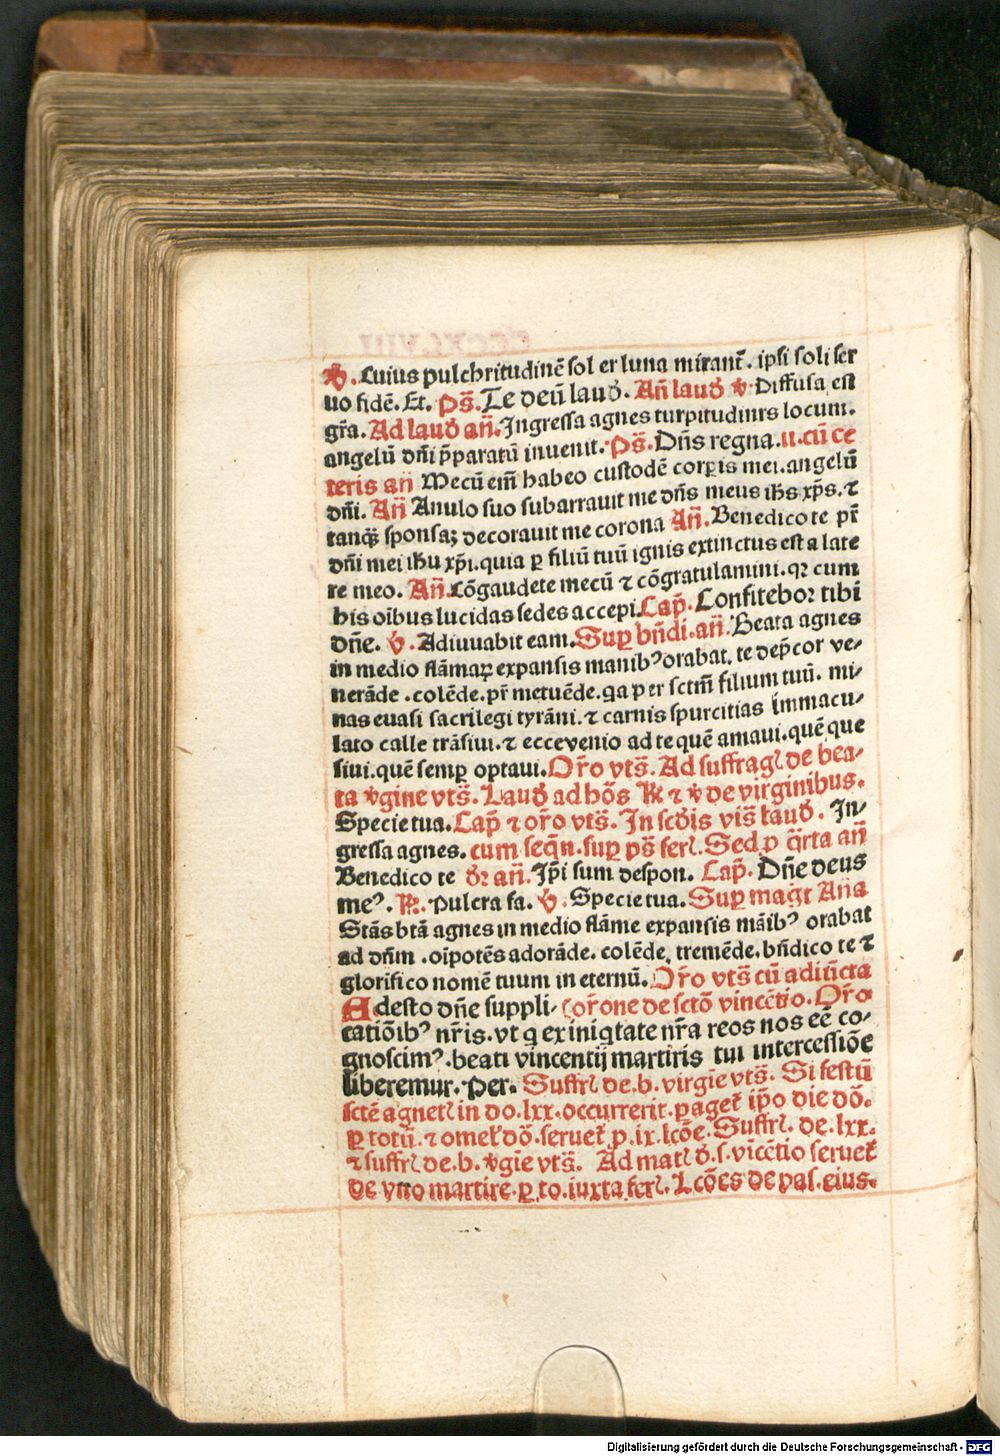 ℣. Cuius pulchritudinē sol er luna mirant̄. ipsi soli ser
uo fidē. Et. Ps̄. Te deū laud̛. An̄ laud̛ ℣. Diffusa est
gr̄a. Ad laud̛ an̄. Ingressa agnes turpitudinis locum.
angelū dn̄i p̄paratū inuenit. Ps̄. Dn̄s regna. u. cū ce
teris an̄ Mecū em̄ habeo custodē corꝑis mei. angelū
dn̄i. An̄ Anulo suo subarrauit me dn̄s meus ih̄s xp̄s. ⁊
tanq̄ꝫ sponsaꝫ decorauit me corona An̄. Benedico te pr̄
dn̄i mei ih̄u xp̄i. quia ꝑ filiū tuū ignis extinctus est a late
re meo. An̄. Cōgaudete mecū ⁊ cōgratulamini. qꝛ cum
his oībus lucidas sedes accepi. Cap̄. Confiteboꝛ tibi
dn̄e. ℣. Adiuuabit eam. Suꝑ bn̄di. an̄. Beata agnes
in medio flāmaꝝ expansis manibꝰ orabat. te dep̄cor ve-
nerāde. colēde. pr̄ metuēde. qa per sctm̄ filium tuū. mi-
nas euasi sacrilegi tyrāni. ⁊ carnis spurcitias immacu-
lato calle trāsiui. ⁊ ecce venio ad te quē amaui. quē que
siui. quē semꝑ optaui. Or̄o vts̄. Ad suffragꝭ de bea-
ta ℣gine vts̄. Laud̛ ad hōs ℟ ⁊ ℣ de virginibus.
Specie tua. Cap̄ ⁊ or̄o vts̄. In scd̛is vis̄ laud̛. In-
gressa agnes. cum seqn̄. suꝑ ps̄ ferꝭ. Sed ꝑ q̄rta an̄
Benedico te d̛r an̄. Ip̄i sum despon. Cap̄. Dn̄e deus
meꝰ. ℟. Pulcra fa. ℣. Specie tua. Suꝑ magt̄ An̄a
Stās btā agnes in medio flāme expansis māibꝰ orabat
ad dn̄m. oīpotēs adorāde. colēde, tremēde. bn̄dico te ⁊
glorifico nomē tuum in eternū. Or̄o vts̄ cū adiūcta
Adesto dn̄e suppli- cor̄one de sctō vincētio. Or̄o
catiōibꝰ nr̄is. vt q ex iniqtate nr̄a reos nos eē co-
gnoscimꝰ. beati vincentij martiris tui intercessiōe
liberemur. Per. Suffrꝭ de. b. virgie vts̄. Si festū
sctē agnetꝭ in do. lxx. occurrerit. ꝑaget̄ ip̄o die dō.
ꝑ totū. ⁊ omel̛ dō. seruet̄ ꝓ. ix. lcōe. Suffrꝭ. de. lxx.
⁊ suffrꝭ de. b. ℣gie vts̄. Ad matꝭ d̛. s. vicētio seruet̄
de vno martire. ꝑ to. iuxta ferꝭ. Lcōes de pal. eius.
Digitalisierung gefördert durch die Deutsche Forschungsgemeinschaft - DFG